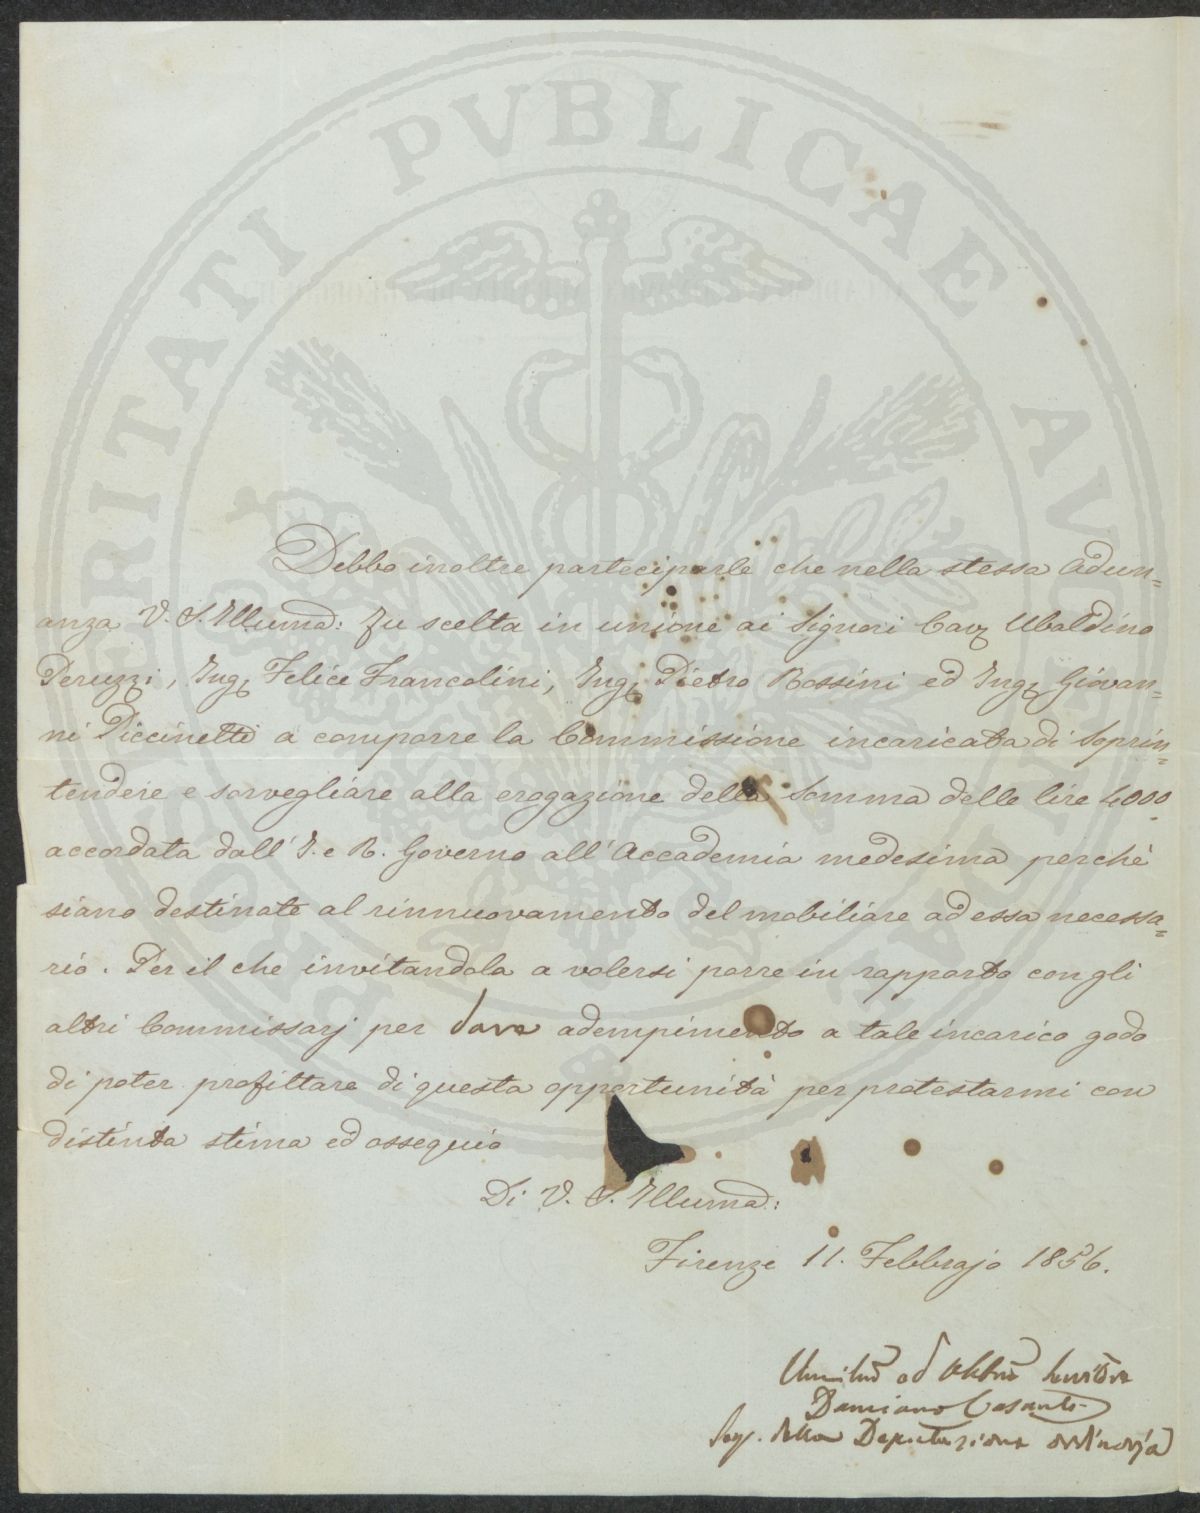 PROSPERITATI PVBLICAE AVGENDAE
Debbo inoltre parteciparle che nella stessa Adun=
anza V. S. Illuma: fu scelta in unione ai Signori Cav. Ubaldino
Peruzzi, Ing. Felice Francolini, Ing. Pietro Rossini ed Ing. Giovan=
ni Piccinetti a comporre la Commissione incaricata di Soprin=
tendere e sorvegliare alla erogazione della Somma delle lire 4000
accordata dall' I. e R. Governo all' Accademia medesima perchè
siano destinate al rinnuovamento del mobiliare ad essa necessa=
rio. Per il che invitandola a volersi porre in rapporto con gli
altri Commissarj per dare adempimento a tale incarico godo
di poter profittare di questa opportunità per protestarmi con
distinta stima ed ossequio
Di V. S. Illuma:
Firenze 11. Febbrajo 1856.
Umilmo ed Obbmo Servitore
Damiano Casanti
Seg. della Deputazione ordinaria